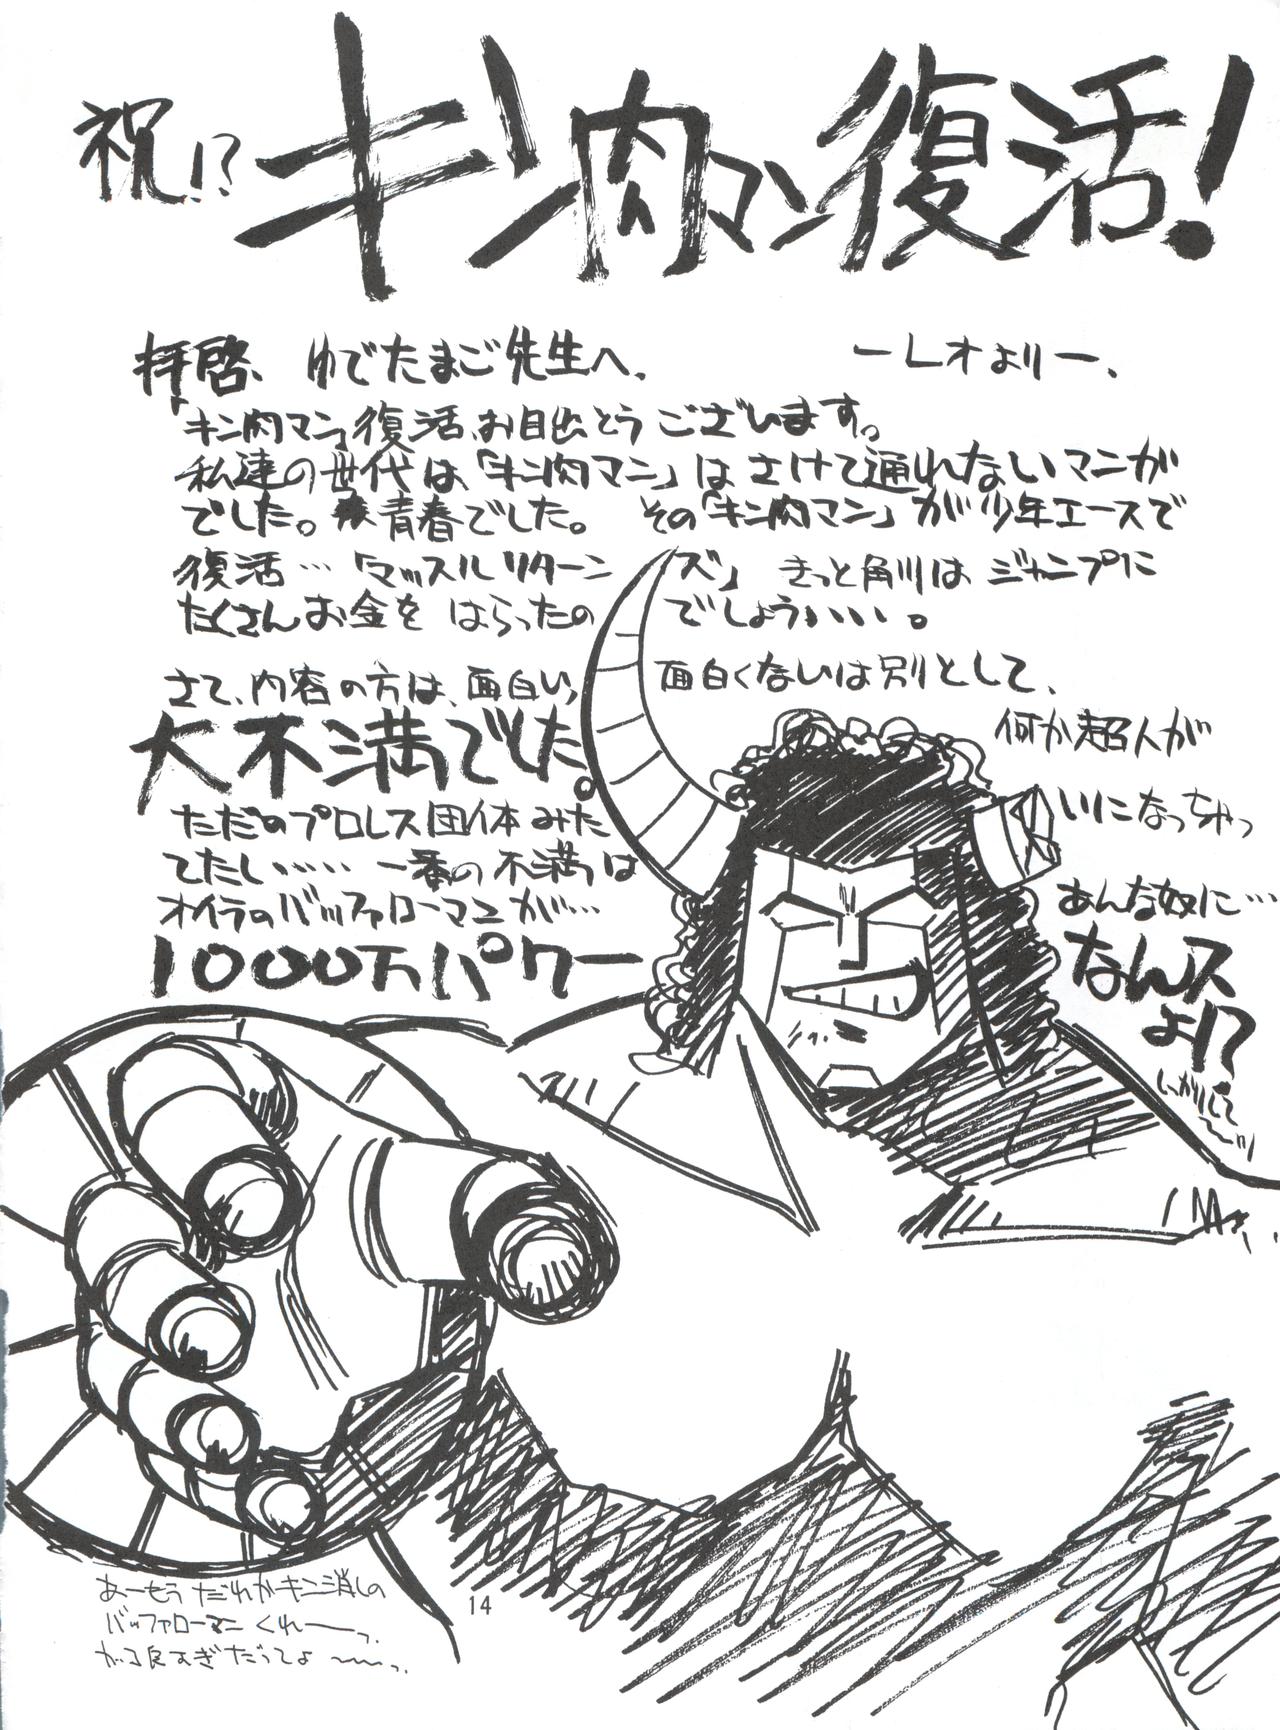 祝!? キン肉マン復活!
拝啓、ゆでたまご先生へ、 ーレオよりー、
「キン肉マン」復活、お目出とうございます。
私達の世代は、「キン肉マン」はさけて通れないマンガ
でした。青春でした。 その「キン肉マン」が少年エースで
復活…「マッスルリターンズ」 きっと角川はジャンプに
たくさんお金をはらったのでしょう…。
さて、内容の方は、面白い、面白くないは別として、
大不満でした。何か超人が
ただのプロレス団体みたいになっちゃっ
てたし…… 一番の不満は あんな奴に…
オイラのバッファローマンが…
1000万パワー なんスよ!?
しっかりして〜っ
あーもう だれかキン消しの
バッファローマンくれーーっ、
がる良すぎだってよ〜〜っ、
14